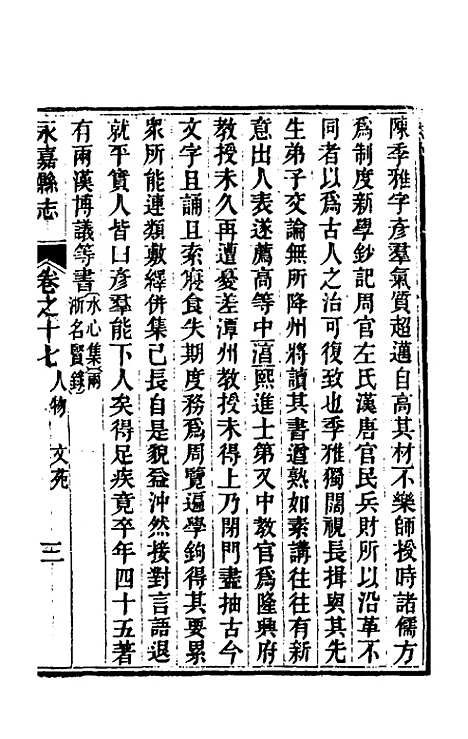 陳季雅字彥羣氣質超邁自高其材不樂師授時諸儒方
爲制度新學鈔記周官左氏漢唐官民兵財所以沿革不
同者以爲古人之治可復致也季雅獨闊視長揖與其先
生弟子交論無所降州將讀其書遒熟如素講往往有新
意出人表遂薦高等中淳熙進士第又中教官爲隆興府
教授未久再遭憂差潭州教授未得上乃閉門盡抽古今
文字且誦且索寢食失期度務爲周覽遍學鉤得其要累
衆所能連類敷繹併集己長自是貌益沖然接對言語退
就平實人皆曰彥羣能下人矣得足疾竟卒年四十五著
有兩漢博議等書(水心集)(兩浙名賢錄)
永嘉縣志 卷之十七 人物 文苑 三